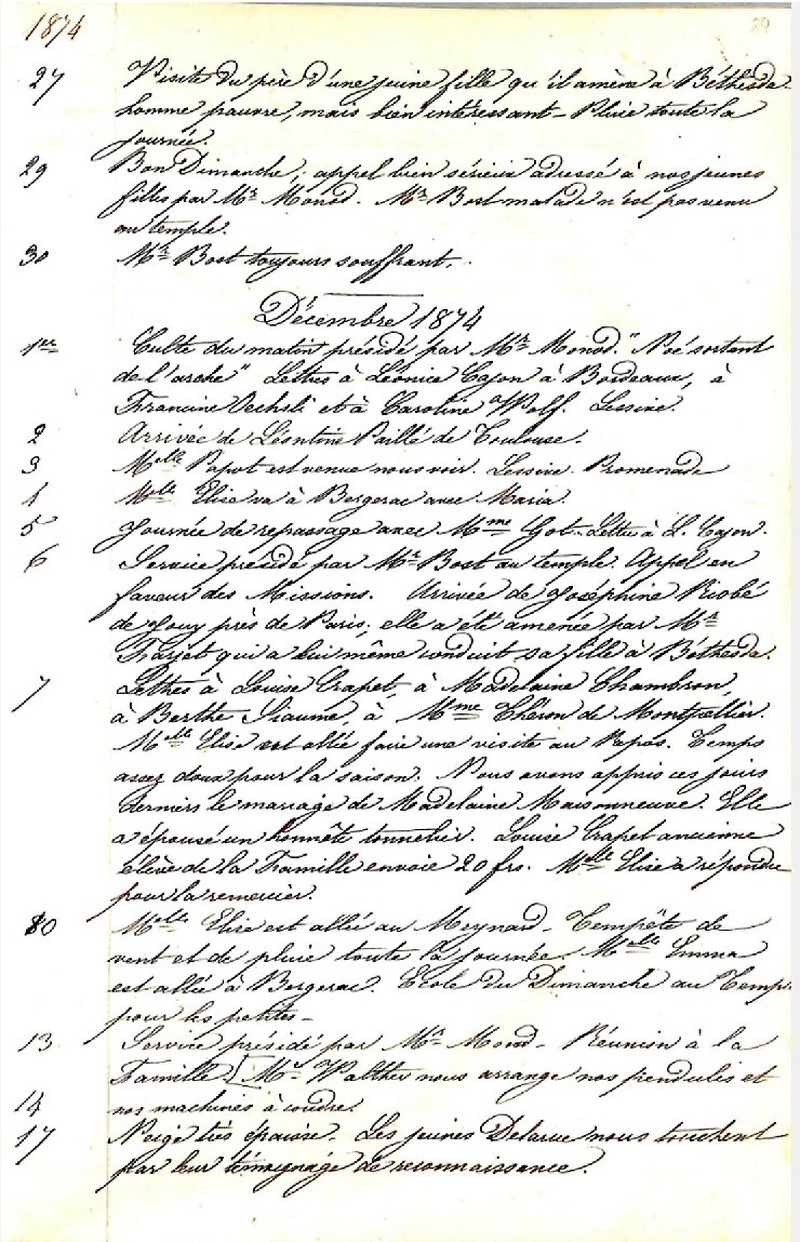 1874
89
27 Visite du père d'une jeune fille qu'il amène à Béthesda.
homme pauvre, mais bien intéressant - Pluie toute la
journée.
29 Bon Dimanche; appel bien sérieux adressé à nos jeunes
filles par Mr Monod. Mr Bost malade n'est pas venu
au temple.
30 Mr Bost toujours souffrant.
Décembre 1874
1er Culte du matin présidé par Mr Monod. "Noé sortant
de l'arche" Lettres à Léonice Cajon à Bordeaux, à
Francine Oechsli et à Caroline Wolf. Lessive.
2 Arrivée de Léontine Paillé de Toulouse.
3 Melle Papot est venue nous voir. Lessive. Promenade
4 Melle Elise va à Bergerac avec Maria.
5 Journée de repassage avec Mme Got. Lettre à L. Cajon.
6 Service présidé par Mr Bost au temple. Appel en
faveur des Missions. Arrivée de Joséphine Riobé
de Jouy près de Paris; elle a été amenée par Mr
Farjet qui a lui même conduit sa fille à Béthesda.
7 Lettres à Louise Crapet, à Madelaine Chambron,
à Berthe Siaume, à Mme Théron de Montpellier.
Melle Elise est allée faire une visite au Repos. Temps
assez doux pour la saison. Nous avons appris ces jours
derniers le mariage de Madelaine Maisonneuve. Elle
a épousé un honnête tonnelier. Louise Crapet ancienne
élève de la Famille envoie 20 frs. Melle Elise a répondu
pour la remercier.
10 Melle Elise est allée au Meynard - Tempête de
vent et de pluie toute la journée. Melle Emma
est allée à Bergerac. Ecole du Dimanche au Temple
pour les petites -
13 Service présidé par Mr Monod - Réunion à la
Famille [Mr Walther nous arrange nos pendules et
14 nos machines à coudre.
17 Neige très épaisse. Les jeunes Delarue nous touchent
par leur témoignage de reconnaissance.